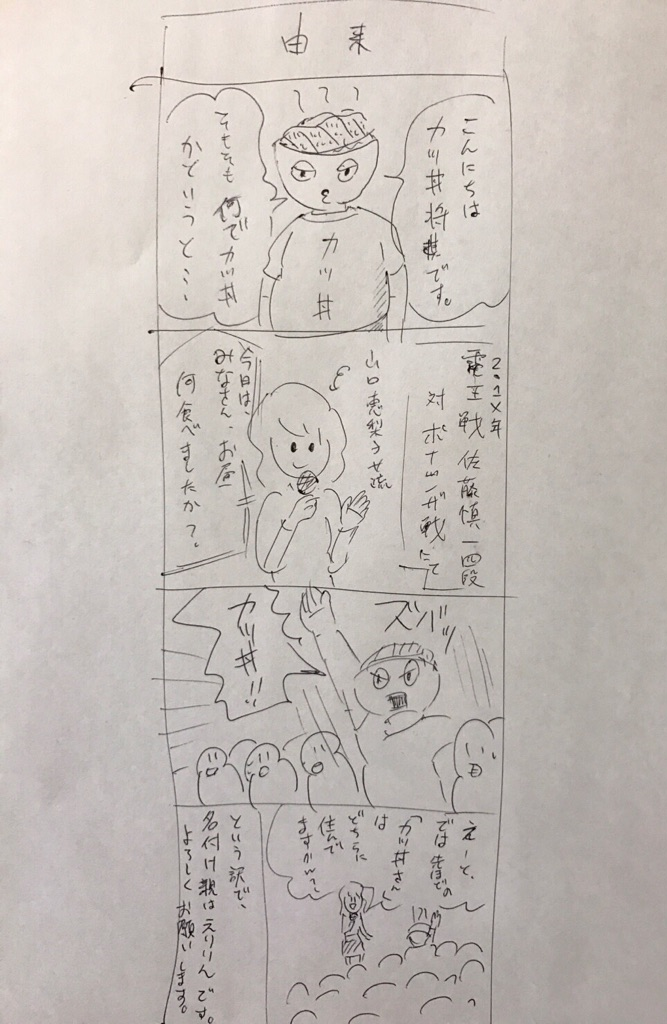 由来
こんにちは
カツ丼将棋です。
そもそも何でカツ丼
かというと・・・
カツ丼
201X年
電王戦 佐藤慎一四段
対 ポナンザ戦にて
山口恵梨子女流
今日は、
みなさん、お昼
何食べましたか?
ズバッ
カツ丼!!
えーと、
では先ほどの
「カツ丼さん」
は
どちらに
住んで
ますかぁ~?
という訳で、
名付け親はえりりんです。
よろしくお願いします。